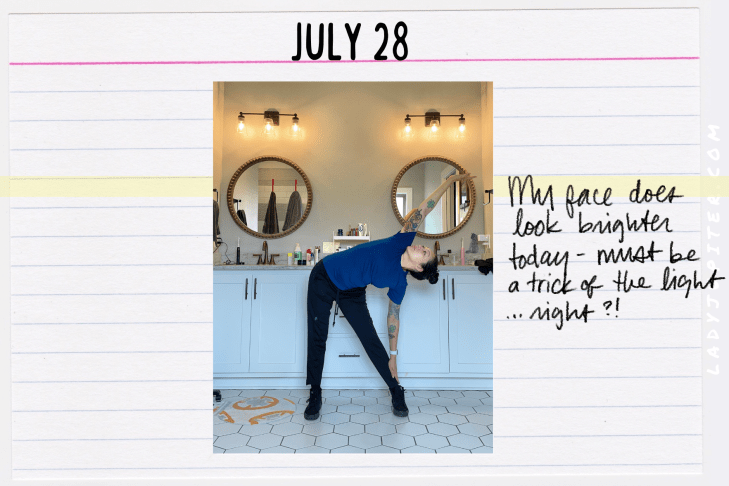 JULY 28
My face does
look brighter
today - must be
a trick of the light
... right?!
LADYJUPITER.COM